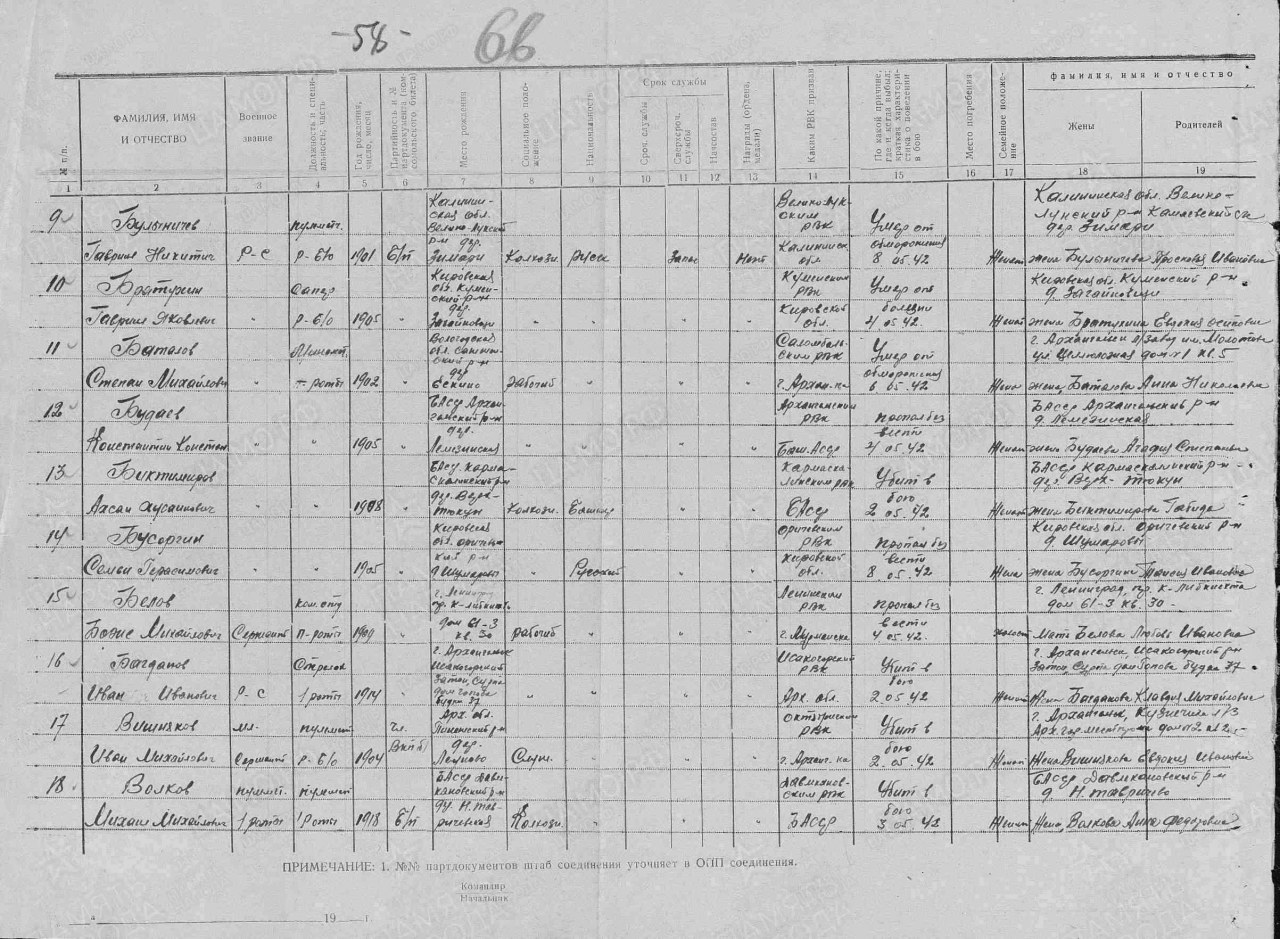 -58-
66
№ п/п.
ФАМИЛИЯ, ИМЯ И ОТЧЕСТВО
Военное звание
Должность и специальность, часть
Год рождения, число, месяц
Партийность и № партдокумента (комсомольского билета)
Место рождения
Социальное положение
Национальность
Срок службы
Сроч. службы
Сверхсроч. службы
Начсостав
Награды (ордена, медали)
Каким РВК призван
По какой причине, где и когда выбыл; краткая характеристика о поведении в бою
Место погребения
Семейное положение
фамилия, имя и отчество
Жены
Родителей
1 2 3 4 5 6 7 8 9 10 11 12 13 14 15 16 17 18 19
9 Булыничев Гаврил Никитич Р-С пулметч. Р-б/о 1901 б/п Калининская обл. Велико-Лукский р-н дер. Зимари Колхозн. Русск Запас Нет Велико-Лукским РВК Калининск обл Умер от обморожения 8 05.42 Женат Калининская обл. Велико-Лукский р-н дер. Зимари жена Булыничева Просковья Ивановна
10 Братухин Гаврил Яковлевич " Сапер Р-б/о 1905 " Кировская обл. Куменский р-н дер. Загайновци " " " " Куменским РВК Кировской обл. Умер от болезни 4 05.42. Женат Кировская обл. Куменский р-н д. Загайновци жена Братухина Евдокия Осиповна
11 Баталов Степан Михайлович " роты 1902 " Вологодская обл. р-н дер Ескино рабочий " " " Соломбальским РВК г. Умер от обморожения 6 05.42 Женат г. Архангельск завод им. Молотова дом №1 кв. 5 жена, Баталова Анна Николаевна
12 Будаев Константин Констан " " 1905 " БАССР Архангельский р-н дер. Лемезинская " " " " Архангельским РВК Баш.АССР пропал без вести 4 05.42 Женат БАССР Архангельский р-н д. Лемезинская жена Будаева Агафия Степановна
13 Биктимиров Ахсан Хусаинович " " 1908 " БАССР Кармаскалинский р-н дер. Верх-Тюкун Колхозн. Башкир " " Кармаскалинским РВК БАССР Убит в бою 2 05.42 Женат БАССР Кармаскалинский р-н дер. Верх-Тюкун жена Биктимирова
14 Бусоргин Семен Герасимович " " 1905 " Кировская обл. Оричевский р-н д Шумаровы " Русский " " Оричевским РВК Кировской обл. пропал без вести 8 05.42 Женат Кировская обл. Оричевский р-н д. Шумаровы жена Бусоргина Таисия Ивановна
15 Белов Борис Михайлович Сержант ком. отд п-роты 1900 " г. Ленинград пр. К-Либкнехта дом 61-3 кв. 30 рабочий " " " Ленинским РВК г. Мурманска пропал без вести 4 05.42. холост г. Ленинград, пр. К-Либкнехта дом 61-3 кв. 30. Мать Белова Любовь Ивановна
16 Багданов Иван Иванович Р-С Стрелок 1 роты 1914 " г. Архангельск Исакогорский Затон дом Попова будка 37 " " " " Исакогорский РВК Арх. обл. Убит в бою 2 05.42 Женат г. Архангельск, Исакогорский р-н Затон дом Попова будка 37 Жена Багданова Клавдия Михайловна
17 Вишняков Иван Михайлович мл. Сержант пулмет Р-б/о 1904 ВКП(б) Арх. обл. р-н дер. Служ. " " " Октябрьским РВК г. Арханг-ка Убит в бою 2.05.42 Женат г. Архангельск, Жена Вишнякова Евдокия Ивановна
18. Волков Михаил Михайлович пулмет. 1 роты пулмет 1 роты 1918 б/п БАССР Давлекановский р-н д. Н. Тавричевская Колхозн " " " Давлекановским РВК БАССР Убит в бою 3 05.42 Женат БАССР Давлекановский р-н д. Н. Тавричево Жена, Волкова Анна Федоровна
ПРИМЕЧАНИЕ: 1. №№ партдокументов штаб соединения уточняет в ОПП соединения.
Командир
Начальник
19 г.